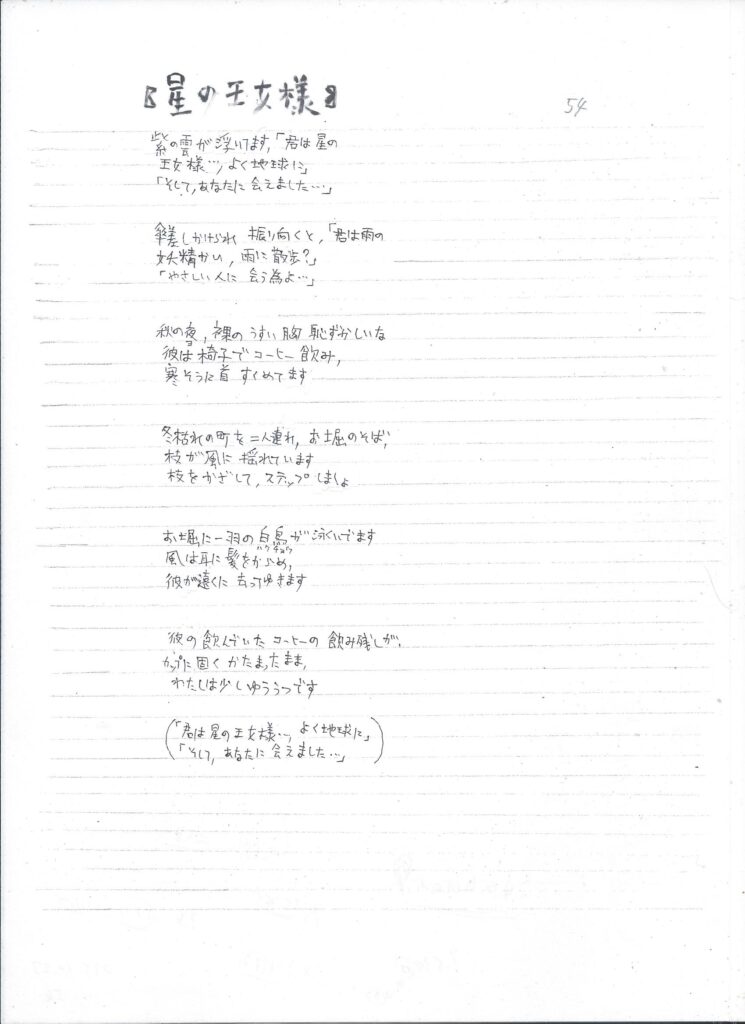 『星の王女様』
54
紫の雲が浮いてます,「君は星の
王女様…, よく地球に」
「そして, あなたに会えました…」
傘差しかけられ 振り向くと,「君は雨の
妖精かい, 雨に散歩?」
「やさしい人に 会う為よ…」
秋の夜, 裸の うすい胸 恥ずかしいな
彼は椅子で コーヒー飲み,
寒そうに首 すくめてます
冬枯れの町を 二人連れ, お堀のそば,
枝が風に 揺れています
枝をかざして, ステップしましょ
お堀に一羽の白鳥が泳いでます
ハクチョウ
風は耳に髪をからめ,
彼が遠くに 去ってゆきます
彼の飲んでいた コーヒーの 飲み残しが,
カップに固く かたまったまま,
わたしは少しゆううつです
(「君は星の王女様…, よく地球に」
「そして, あなたに 会えました…」)